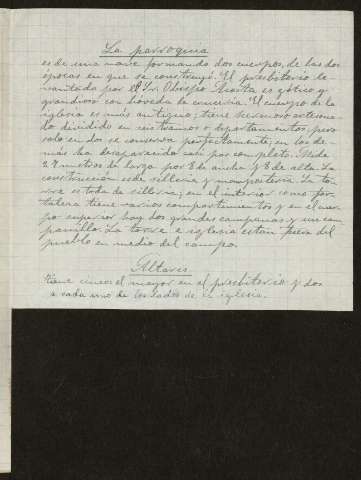 La parroquia
es de una nave formando dos cuerpos, de las dos
epocas en que se construyó. El presbiterio le-
vantado por el Sr. Obispo Acosta es gótico y
grandioso con boveda de cruceria. El cuerpo de la
iglesia es más antiguo; tiene hermoso
dividido en tramos o departamentos, pero
solo en dos se conserva perfectamente; en los de-
más ha desaparecido casi por completo. Mide
27 metros de largo por 8 de ancho y 8 de alto. La
construcción es de silleria y mamposteria. La to-
rre es toda de silleria; en el interior como for-
taleza tiene varios compartimientos y en el cuer-
po superior hay dos grandes campanas y un cam-
panillo. La torre e iglesia estan fuera del
pueblo en medio del campo.
Altares
tiene cinco; el mayor en el presbiterio y dos
a cada uno de los lados de la iglesia.